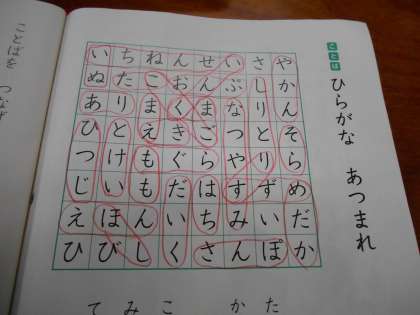 ことば
ひらがな　あつまれ
やかんそらめだか
さしりとりずいぽ
いぷなつやすみん
せんまごらはちさ
んおくきぐだいく
ねこまえももんし
ちたりとけいほび
いぬあひつじえひ
た
か
こ
み
て
ことばを　つなげ